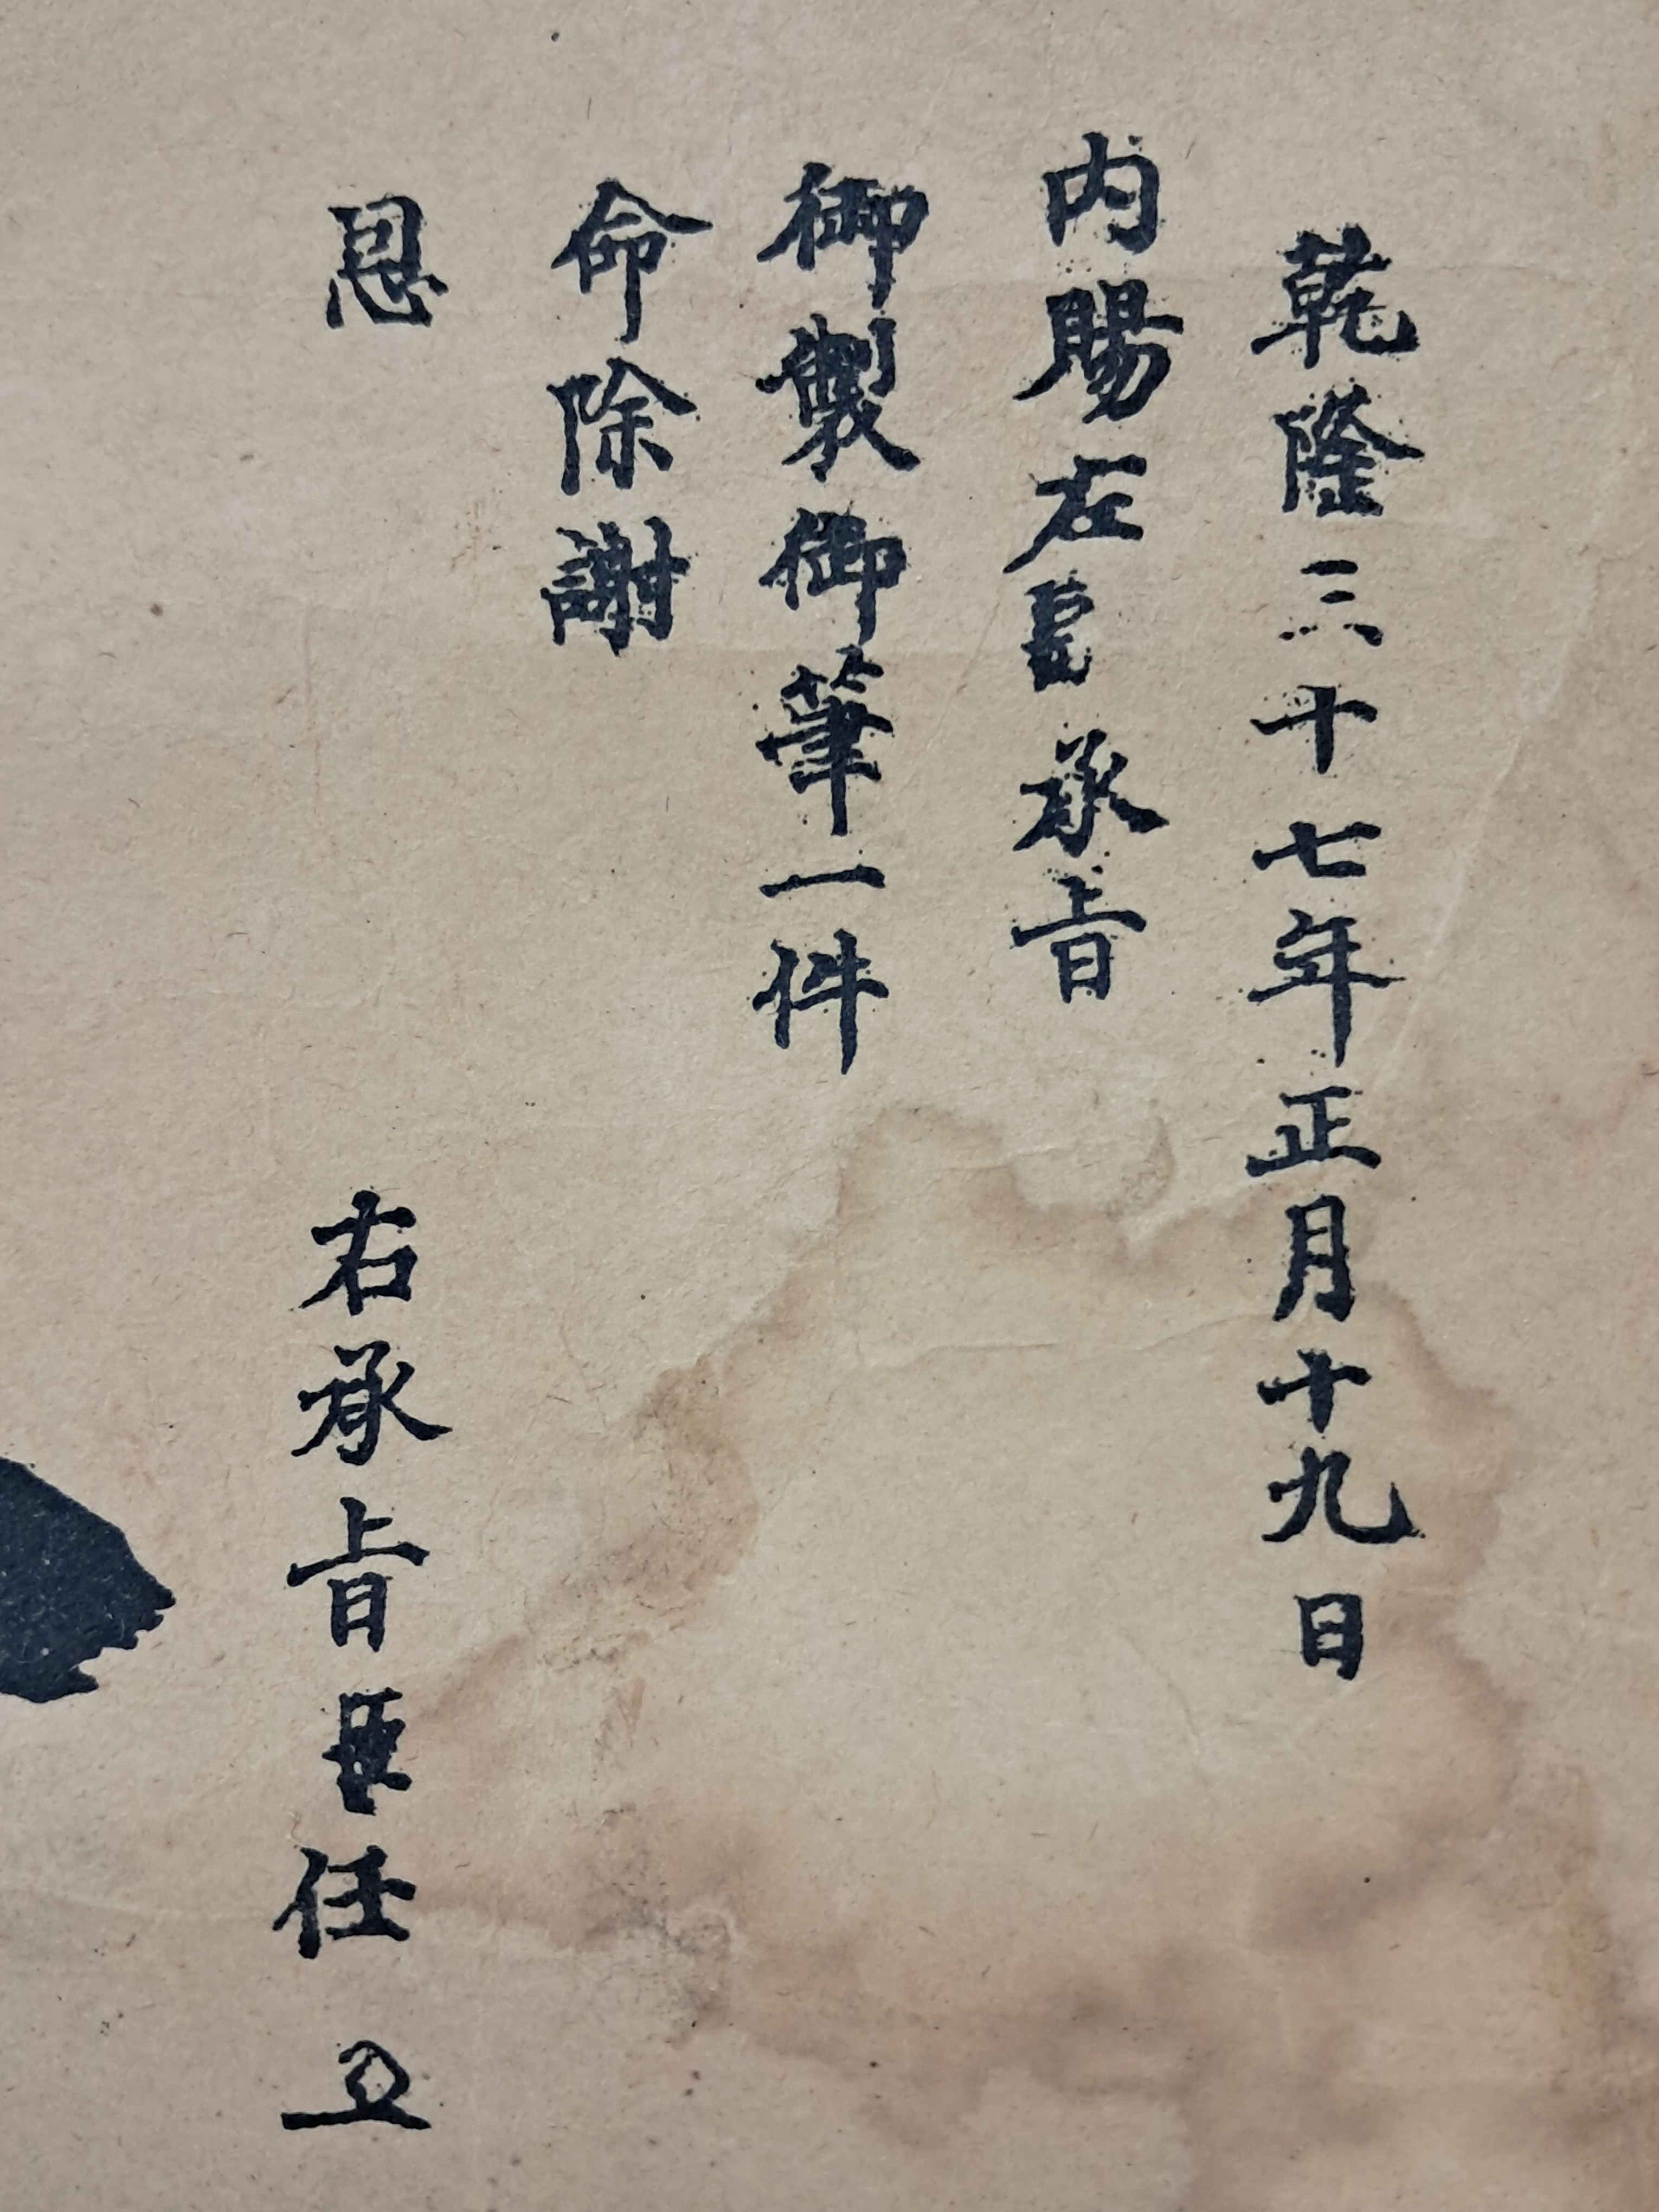 乾隆三十七年正月十九日
内賜左 承旨
御製御筆一件
命除謝
恩
右承旨臣任